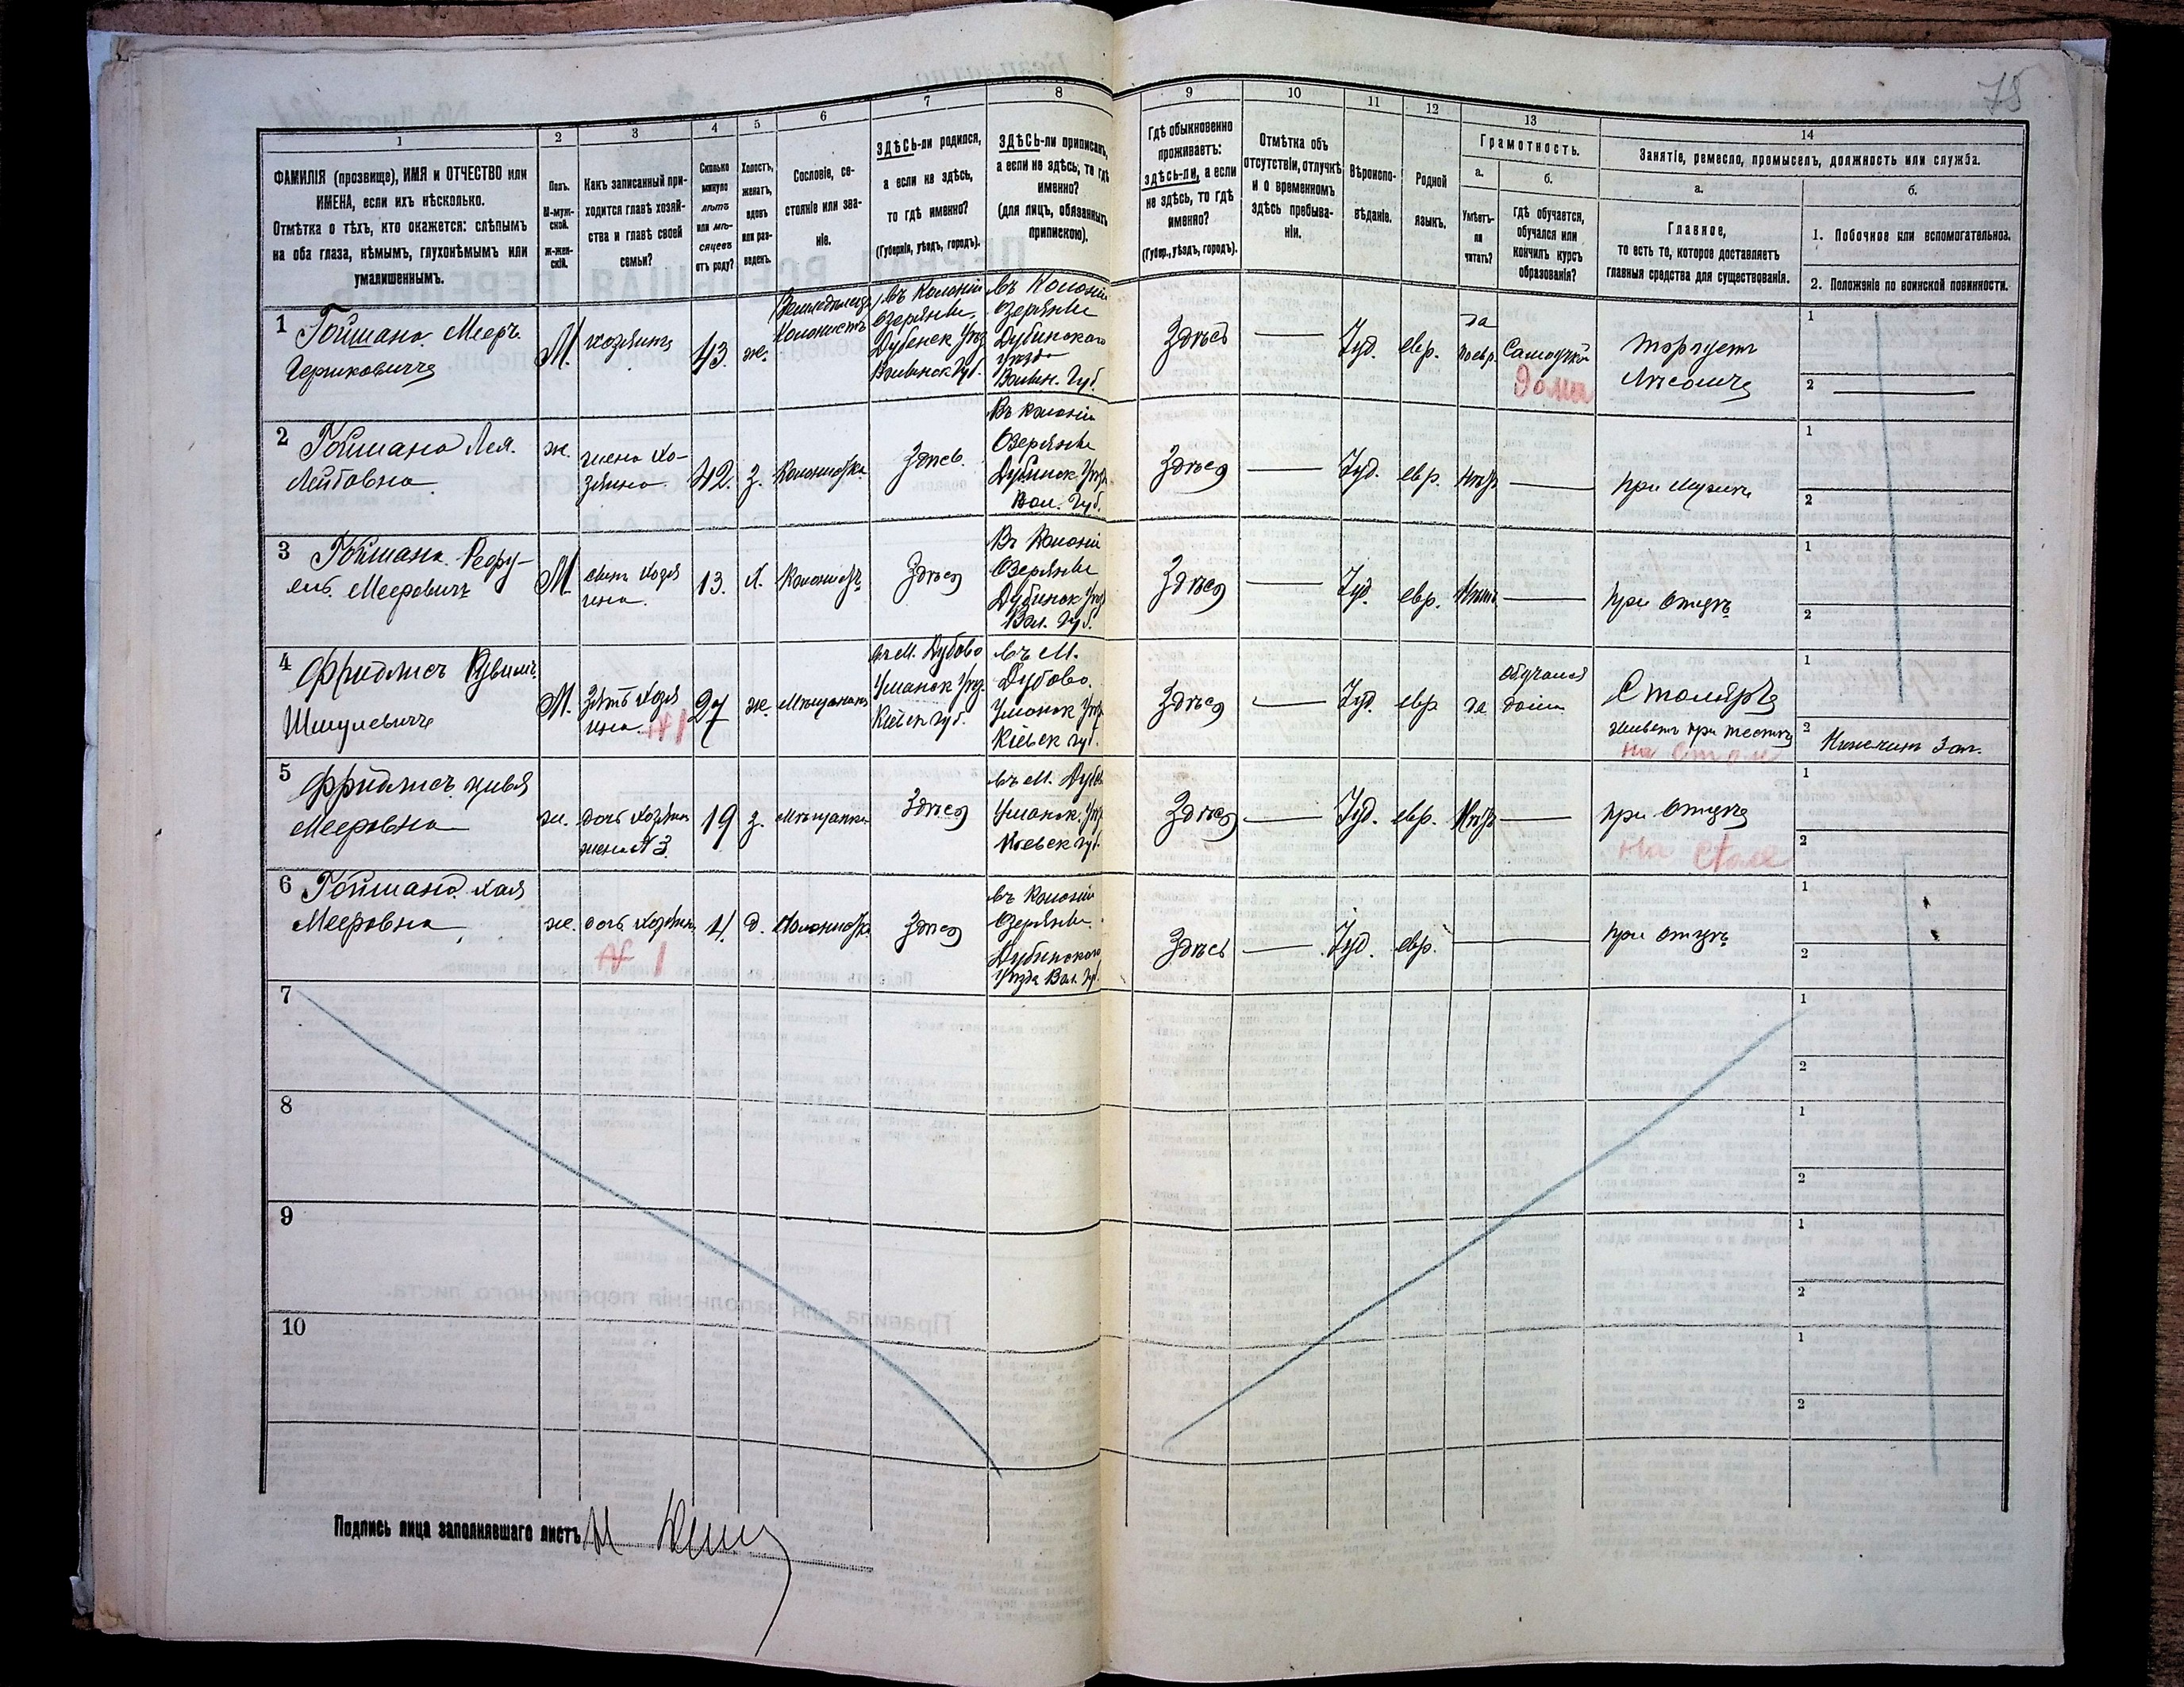 78
1 2 3 4 5 6 7 8 9 10 11 12 13 14
ФАМИЛІЯ (прозвище), ИМЯ и ОТЧЕСТВО или
ИМЕНА, если ихъ нѣсколько.
Отмѣтка о тѣхъ, кто окажется: слѣпымъ
на оба глаза, нѣмымъ, глухонѣмымъ или
умалишеннымъ.
Полъ.
М-муж-
ской.
Ж-жен-
скій.
Какъ записанный при-
ходится главѣ хозяй-
ства и главѣ своей
семьи?
Сколько
минуло
лѣтъ
или мѣ-
сяцевъ
отъ роду?
Холостъ,
женатъ,
вдовъ
или раз-
веденъ.
Сословіе, со-
стояніе или зва-
ніе.
ЗДѢСЬ-ли родился,
а если не здѣсь,
то гдѣ именно?
(Губернія, уѣздъ, городъ).
ЗДѢСЬ-ли приписанъ,
а если не здѣсь, то гдѣ
именно?
(для лицъ, обязанныхъ
припискою).
Гдѣ обыкновенно
проживаетъ:
здѣсь-ли, а если
не здѣсь, то гдѣ
именно?
(Губер., уѣздъ, городъ).
Отмѣтка объ
отсутствіи, отлучкѣ
и о временномъ
здѣсь пребыва-
ніи.
Вѣроиспо-
вѣданіе.
Родной
языкъ.
Грамотность.
а.
Умѣетъ-
ли
читать?
б.
Гдѣ обучается,
обучался или
кончилъ курсъ
образованія?
Занятіе, ремесло, промыселъ, должность или служба.
а.
Главное,
то есть то, которое доставляетъ
главныя средства для существованія.
б.
1. Побочное или вспомогательное.
2. Положеніе по воинской повинности.
1 Гойшана Мееръ
М. хозяинъ 43 ж.
Колонистъ
въ Колоніи
Озерянки
Дубенск Уѣзд
Волынск Губ.
въ Колоніи
Озерянки
Дубинского
Уѣзда
Волын. Губ.
Здѣсь — Іуд. евр.
да
поевр
Дома
торгуетъ
Лѣсомъ
1
2 —
2 Гойшана Лея
Лейбовна
ж. жена хо-
зяина 42. з. Колонистка Здѣсь.
Въ колоніи
Озерянки
Дубинск Уѣзд
Вол. Губ.
Здѣсь — Іуд. евр. нѣтъ — при мужѣ
1
2
3 Гойшана
Мееровичъ
М. сынъ хозя
ина. 13. х. Колонистъ Здѣсь
Въ Колоніи
Озерянки
Дубинск Уѣзд
Вол. Губ.
Здѣсь — Іуд. евр. Нѣтъ — при отцѣ
1
2
4 Фридлисъ
Шмулевичъ
М. Зять хозя
ина. № 1 27 ж. мѣщанинъ
въ М. Дубово
Уманск Уѣзд.
Кіевск губ.
въ М.
Дубово.
Уманск Уѣзд
Кіевск губ.
Здѣсь — Іуд. евр да
обучался
дома
Столяръ
живетъ при тестѣ
1
2
5 Фридлисъ Цивья
Мееровна
ж. дочь хозяина
жена № 3. 19 з. мѣщанка Здѣсь
въ М. Дубово
Уманск. Уѣзд
Кіевск губ.
Здѣсь — Іуд. евр. Нѣтъ — при отцѣ
1
2
6 Гойшана Хая
Мееровна
ж. дочь хозяина
№ 1
4. д. Колонистка Здѣсь
въ Колоніи
Озерянки
Дубинского
Уѣзда Вол. Губ.
Здѣсь — Іуд. евр. — при отцѣ
1
2
7
1
2
8
1
2
9
1
2
10
1
2
Подпись лица заполнявшаго листъ